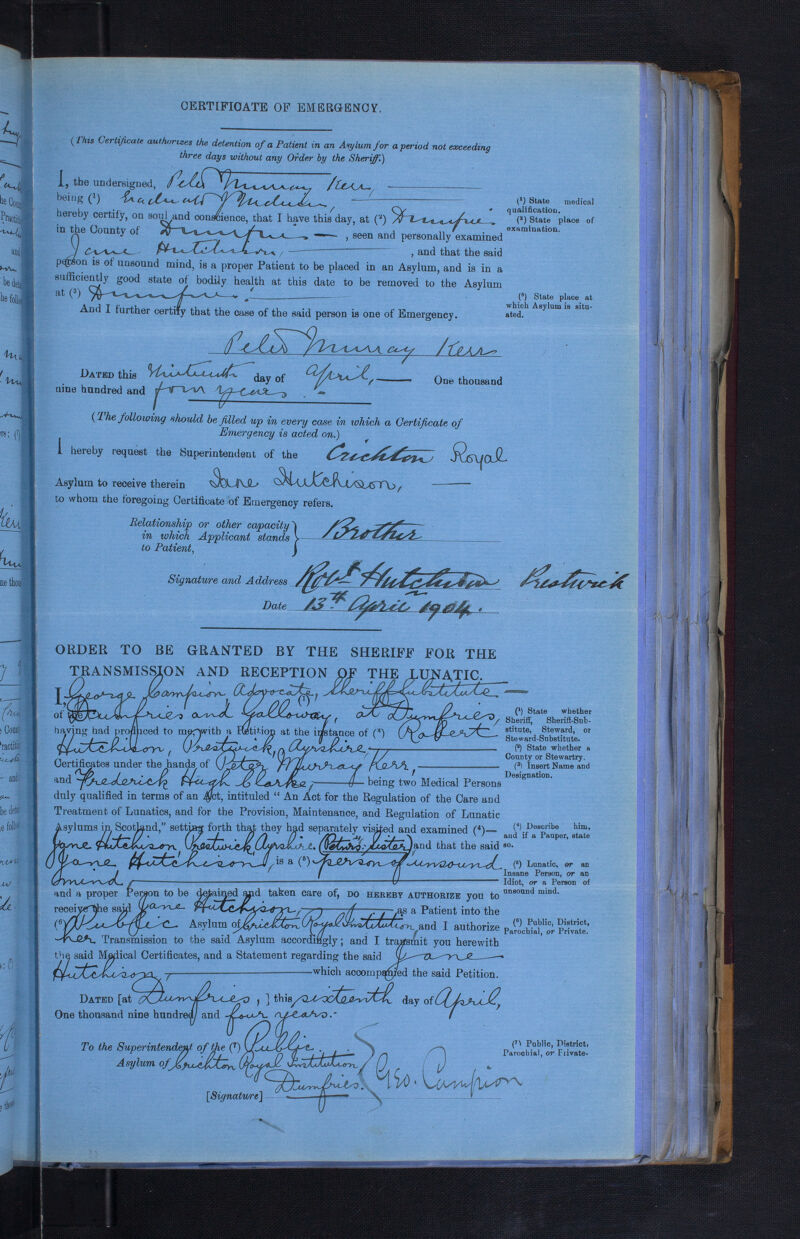 CERTIFICATE OF EMERGENCY.
(This Certificate authorizes the detention of a Patient in an Asylum for a period not exceeding
three days without any Order by the Sheriff.)
I, the undersigned, Peter Murray Kerr,
being (¹) Graduate of Medicine,
(¹) State medical
qualification.
hereby certify, on soul and conscience, that I have this day, at (²) Dumfries
(²) State place of
examination.
in the County of Dumfries, seen and personally examined
Jane Hutchison, and that the said
person is of unsound mind, is a proper Patient to be placed in an Asylum, and is in a
sufficiently good state of bodily health at this date to be removed to the Asylum
at (³) Dumfries.
(³) State place at
which Asylum is situ-
ated.
And I further certify that the case of the said person is one of Emergency.
Peter Murray Kerr
DATED this thirteenth day of April, One thousand
nine hundred and four years.
(The following should be filled up in every case in which a Certificate of
Emergency is acted on.)
I hereby request the Superintendent of the Crichton Royal
Asylum to receive therein Jane Hutchison,
to whom the foregoing Certificate of Emergency refers.
Relationship or other capacity
in which Applicant stands
to Patient,
Brother
Signature and Address Robt Hutchison Prestwick
Date 13th April 1904.
ORDER TO BE GRANTED BY THE SHERIFF FOR THE
TRANSMISSION AND RECEPTION OF THE LUNATIC.
I, George Campion Advocate, Sheriff Substitute
of (¹) Dumfries and Galloway, at Dumfries,
(¹) State whether
Sheriff, Sheriff-Sub-
stitute, Steward, or
Steward-Substitute.
having had produced to me, with a Petition at the instance of (²) Robert
Hutchison, Prestwick, Ayrshire,
(²) State whether a
County or Stewartry.
Certificates under the hands of Peter Murray Kerr,
(³) Insert Name and
Designation.
and Frederick Hugh Clarke, being two Medical Persons
duly qualified in terms of an Act, intituled "An Act for the Regulation of the Care and
Treatment of Lunatics, and for the Provision, Maintenance, and Regulation of Lunatic
Asylums in Scotland," setting forth that they had separately visited and examined (⁴)—
(⁴) Describe him,
and if a Pauper, state
so.
Jane Hutchison, Prestwick, Ayrshire (Petnrs: Sister) and that the said
Jane Hutchison, is a (⁵) person of unsound
mind,
(⁵) Lunatic, or an
Insane Person, or an
Idiot, or a Person of
unsound mind.
and a proper Person to be detained and taken care of, DO HEREBY AUTHORIZE you to
receive the said Jane Hutchison, as a Patient into the
(⁶) Public Asylum of Crichton Royal Institution, and I authorize
(⁶) Public, District,
Parochial, or Private.
her Transmission to the said Asylum accordingly; and I transmit you herewith
the said Medical Certificates, and a Statement regarding the said Jane
Hutchison, which accompanied the said Petition.
DATED [at Dumfries, ] this sixteenth day of April,
One thousand nine hundred and four years.
To the Superintendent of the (⁷) Public
(⁷) Public, District,
Parochial, or Private.
Asylum of Crichton Royal Institution
Dumfries.
[Signature] Geo. Campion